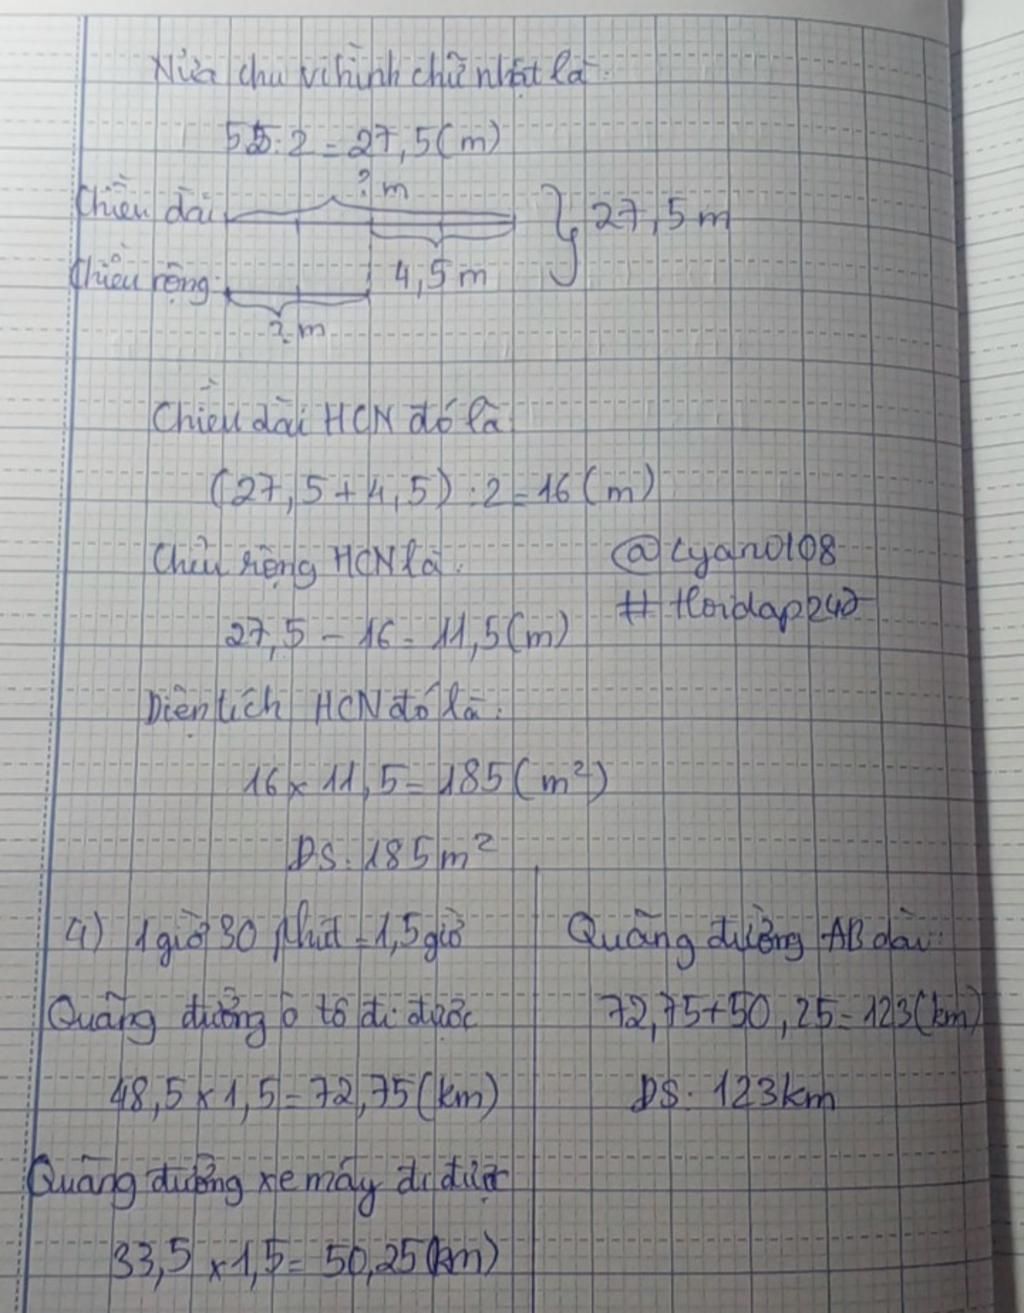 Nửa chu vi hình chữ nhật là:
55:2=27,5(m)
? m
Chiều dài:
27,5m
4,5m
Chiều rộng:
? m
Chiều dài HCN đó là:
(27,5+4,5):2=16(m)
Chiều rộng HCN là:
@cyan0108
#Hoidap247
27,5-16=11,5(m)
Diện tích HCN đó là:
16×11,5=185(m²)
ĐS:185m²
4) 1 giờ 30 phút=1,5 giờ
Quãng đường ô tô đi được
48,5×1,5=72,75(km)
Quãng đường xe máy đi được
33,5×1,5=50,25(km)
Quãng đường AB dài:
72,75+50,25=123(km)
ĐS: 123km